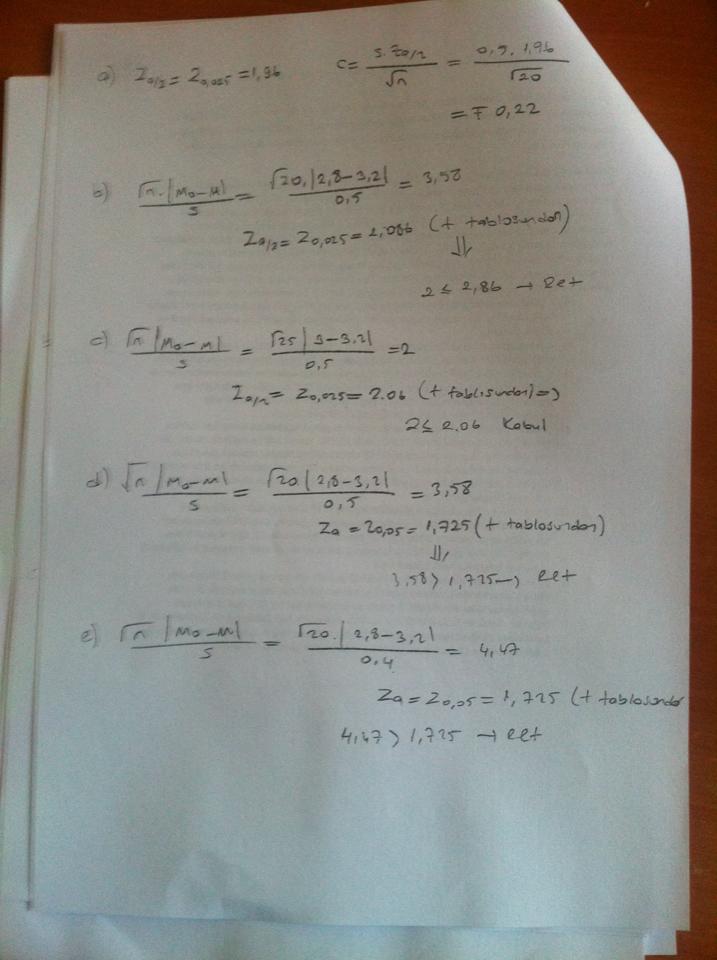 a) Z_{α/2} = Z_{0,025} = 1,96    c = \frac{s.Z_{α/2}}{√n} = \frac{0,5.1,96}{√20}
= ∓ 0,22
b) \frac{√n.|M_0-M|}{s} = \frac{√20.|2,8-3,2|}{0,5} = 3,58
Z_{α/2} = Z_{0,025} = 2,086 (t tablosundan)
⇓
2 ≤ 2,86 → Ret
c) \frac{√n |M_0-M|}{s} = \frac{√25 |3-3,2|}{0,5} = 2
Z_{α/2} = Z_{0,025} = 2.06 (t tablosundan) ⇒
2 ≤ 2.06 Kabul
d) \frac{√n |M_0-M|}{s} = \frac{√20 |2,8-3,2|}{0,5} = 3,58
Z_α = Z_{0,05} = 1,725 (t tablosundan)
⇓
3,58 > 1,725 → Ret
e) \frac{√n |M_0-M|}{s} = \frac{√20.|2,8-3,2|}{0,4} = 4,47
Z_α = Z_{0,05} = 1,725 (t tablosundan
4,47 > 1,725 → Ret